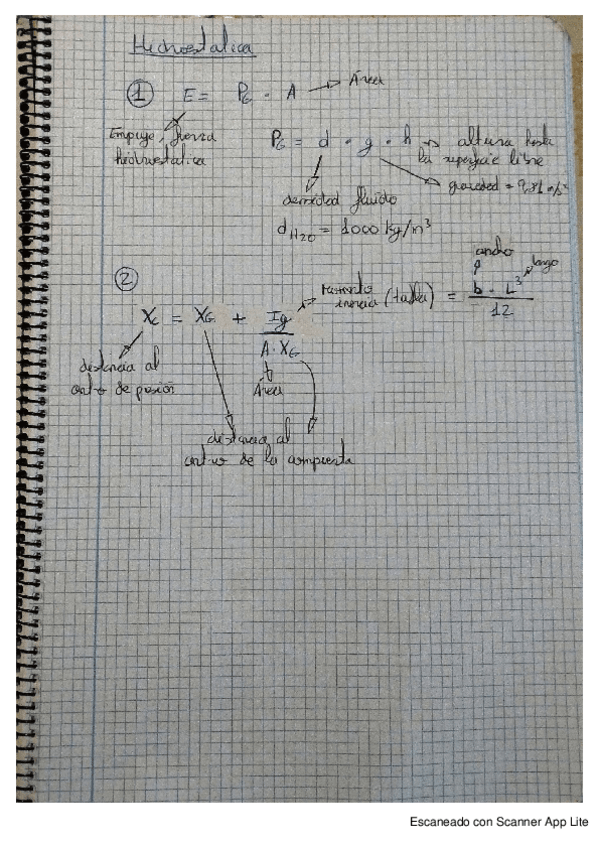 Hidrostatica
① E = P_G · A → Área
Empuje, fuerza
hidrostática
P_G = d · g · h → altura hasta
la superficie libre
gravedad = 9,81 m/s²
densidad fluido
d_H2O = 1000 kg/m³
②
ancho
largo
X_c = X_G + Ig / A · X_G
momento
inercia (tabla) = b · L³ / 12
distancia al
centro de presión
Área
distancia al
centro de la compuerta
Escaneado con Scanner App Lite